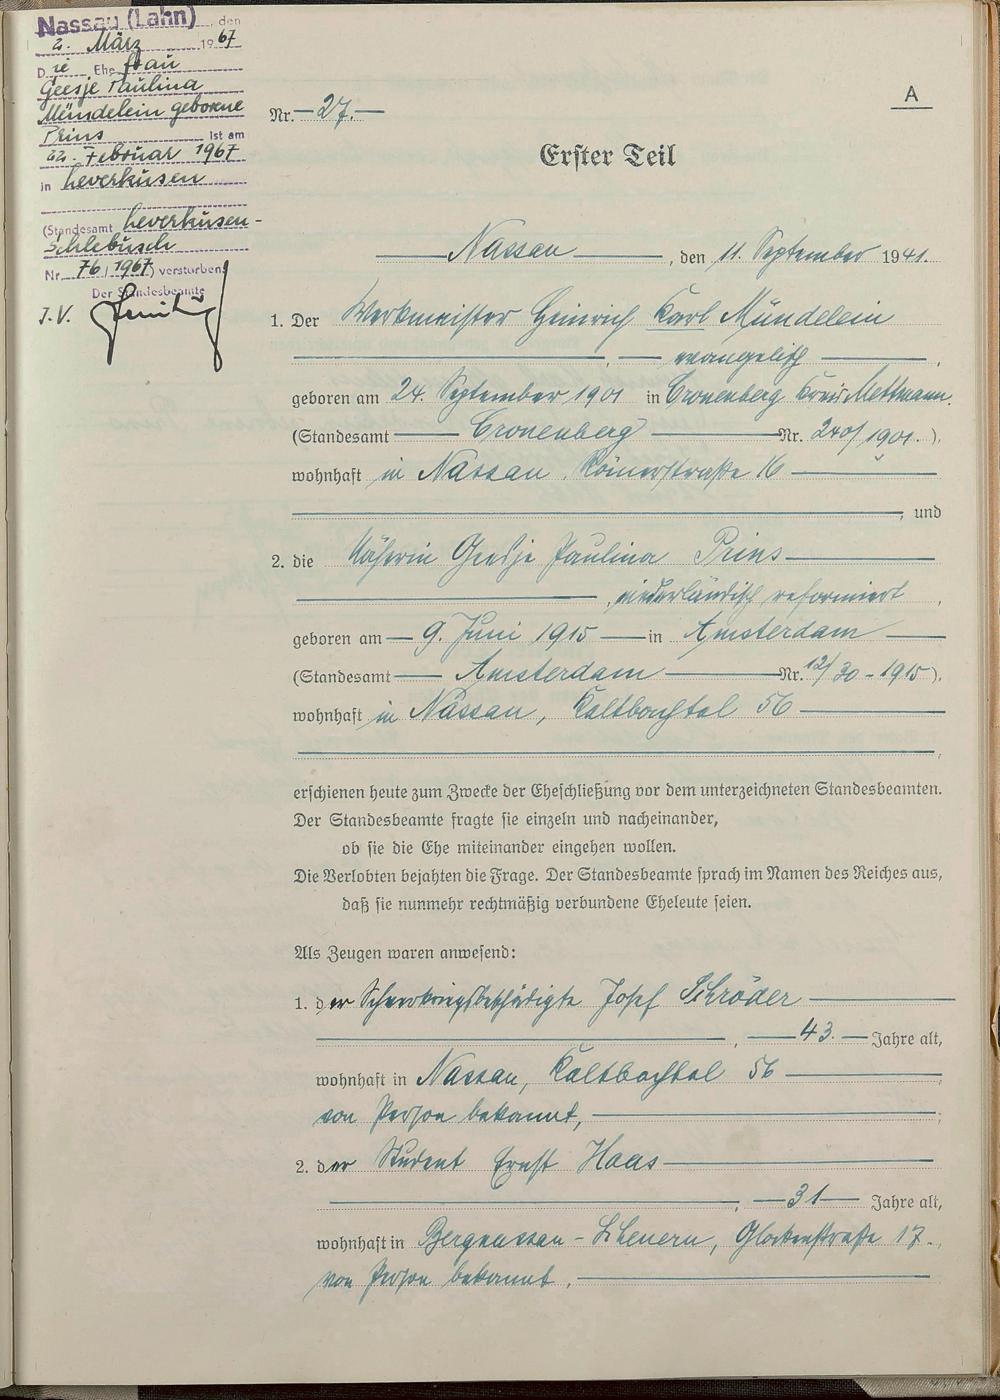 Nassau (Lahn), den
2. März 1967
Die Ehefrau
Geesje Paulina
Mündelein geborene
Prins ist am
22. Februar 1967
in Leverkusen
(Standesamt Leverkusen-
Schlebusch
Nr. 76/1967) verstorben.
Der Standesbeamte
J.V.
A
Nr. 27.
Erster Teil
Nassau, den 11. September 1941.
1. Der Werkmeister Heinrich Karl Mündelein
, evangelisch,
geboren am 24. September 1901 in Cronenberg Kreis Mettmann.
(Standesamt Cronenberg Nr. 240/1901.),
wohnhaft in Nassau, Römerstraße 16
, und
2. die Näherin Geesje Paulina Prins
, niederländisch reformiert,
geboren am 9. Juni 1915 in Amsterdam
(Standesamt Amsterdam Nr. 12/30 - 1915),
wohnhaft in Nassau, Kaltbachtal 56
,
erschienen heute zum Zwecke der Eheschließung vor dem unterzeichneten Standesbeamten.
Der Standesbeamte fragte sie einzeln und nacheinander,
ob sie die Ehe miteinander eingehen wollen.
Die Verlobten bejahten die Frage. Der Standesbeamte sprach im Namen des Reiches aus,
daß sie nunmehr rechtmäßig verbundene Eheleute seien.
Als Zeugen waren anwesend:
1. der Schwerkriegsbeschädigte Josef Schröder
, 43. Jahre alt,
wohnhaft in Nassau, Kaltbachtal 56
von Person bekannt,
2. der Student Ernst Haas
, 31 Jahre alt,
wohnhaft in Bergnassau-Scheuern, Glockenstraße 17.
von Person bekannt.